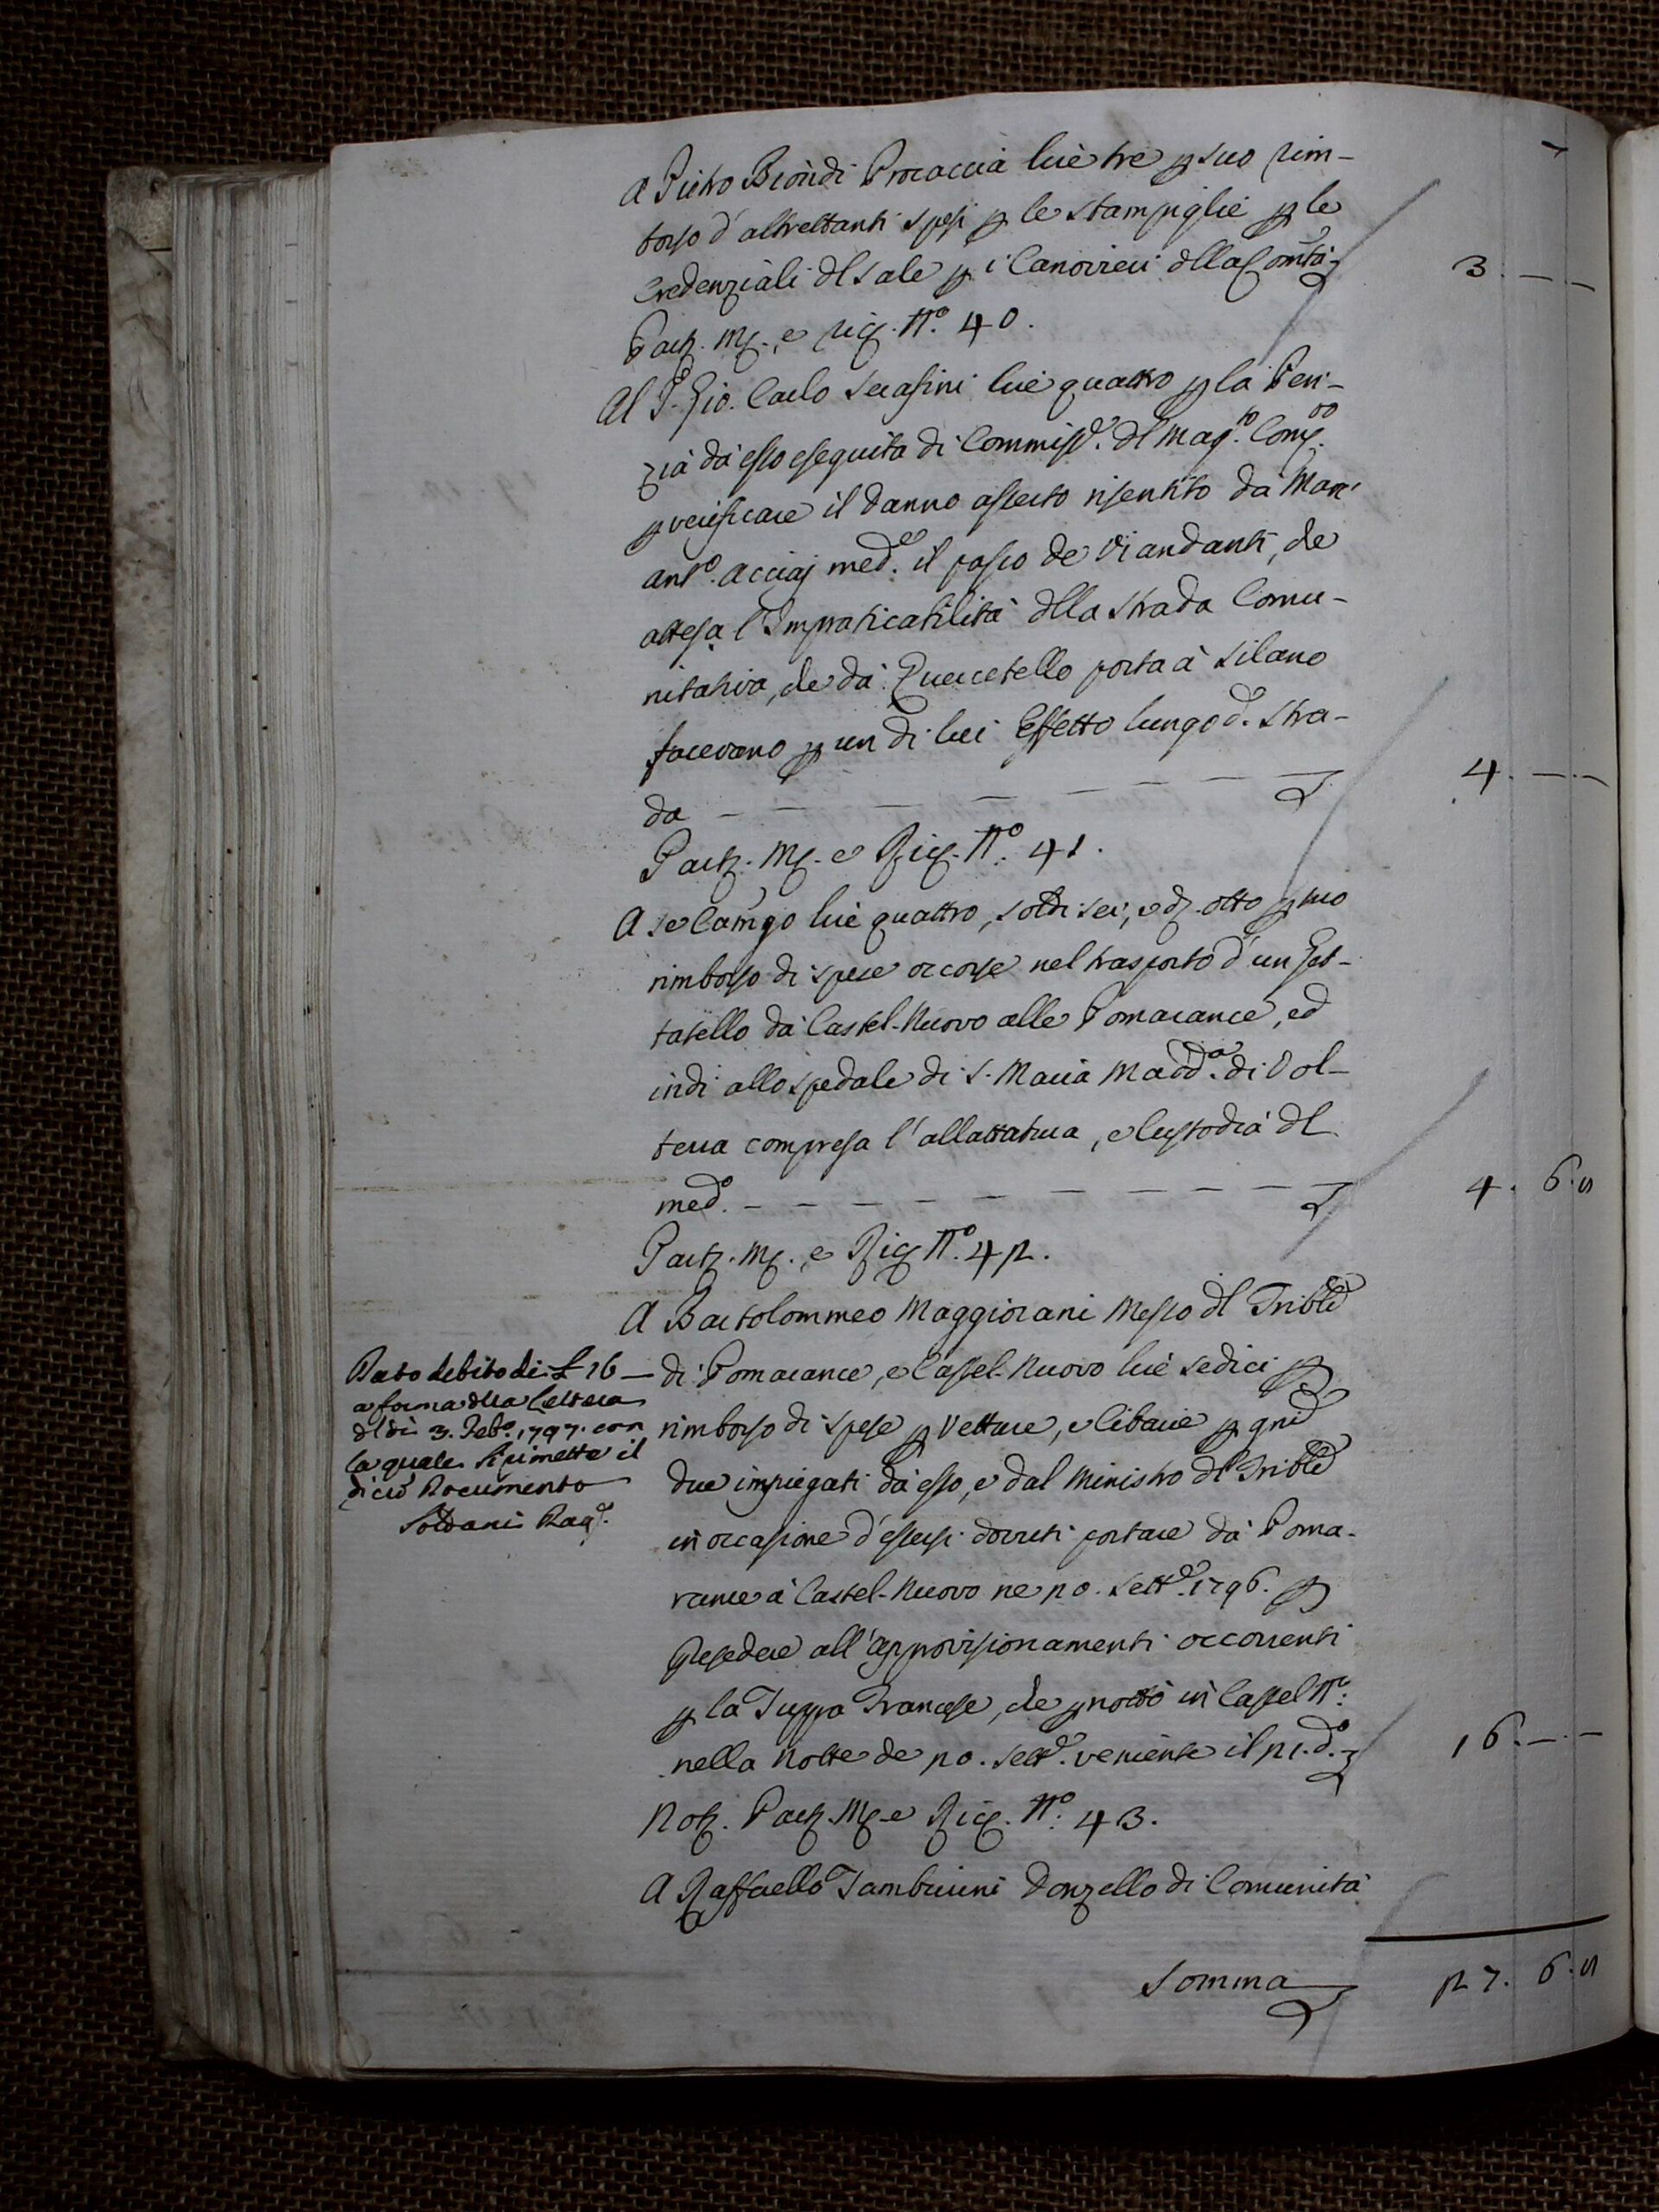 A Pietro Biondi Procaccia lire tre p suo rim-
borso d'altrettanti spesi p le stampiglie p le
Credenziali dl sale p i Canovieri dlla Comtà
3. — . —
Partz. Mg. e Ric. N.º 40.
Al S. Gio. Carlo Serafini lire quattro p la Peri-
zia da esso eseguita di Commisse. dl Mag.to Com.
p verificare il danno asserto risentito da Mar.
Ant.º Acciaj med.e il passo de Viandanti, che
attesa l'Impraticabilità dlla strada Comu-
nitativa, che da Quercetello porta a Silano
facevano p un di lui Effetto lungo d. Stra-
da — — — — — — —
4. — . —
Partz. Mg. e Ric. N.º 41.
A se Camgo lire quattro, soldi sei, e d. otto p suo
rimborso di spese occorse nel trasporto d'un Get-
tatello da Castel-Nuovo alle Pomarance, ed
indi allo spedale di S. Maria Madd.a di Vol-
terra compresa l'allattatura, e Custodia dl
med.º — — — — — — —
4. 6. 8
Partz. Mg. e Ric. N.º 42.
A Bartolommeo Maggiorani Messo dl Trible
di Pomarance, e Castel-Nuovo lire sedici p
rimborso di spese p Vetture, e Cibarie p gni
due impiegati da esso, e dal Ministro dl Trible
in occasione d'essersi dovuti portare da Poma-
rance a Castel-Nuovo ne 20. Sett.e 1796. p
presedere all'approvisionamenti occorrenti
p la Truppa Francese, che pnottò in Castel N.º
nella Notte de 20. Sett.e veniente il 21. d.º
16. — . —
Dato debito di £ 16 —
a forma dlla Lettera
dl di 3. Feb.º 1797. con
la quale si rimette il
di cui Documento
Soldani Rag.
Notz. Partz. Mg. e Ric. N.º 43.
A Raffaello Tamburini Donzello di Comunità
Somma
27. 6. 8